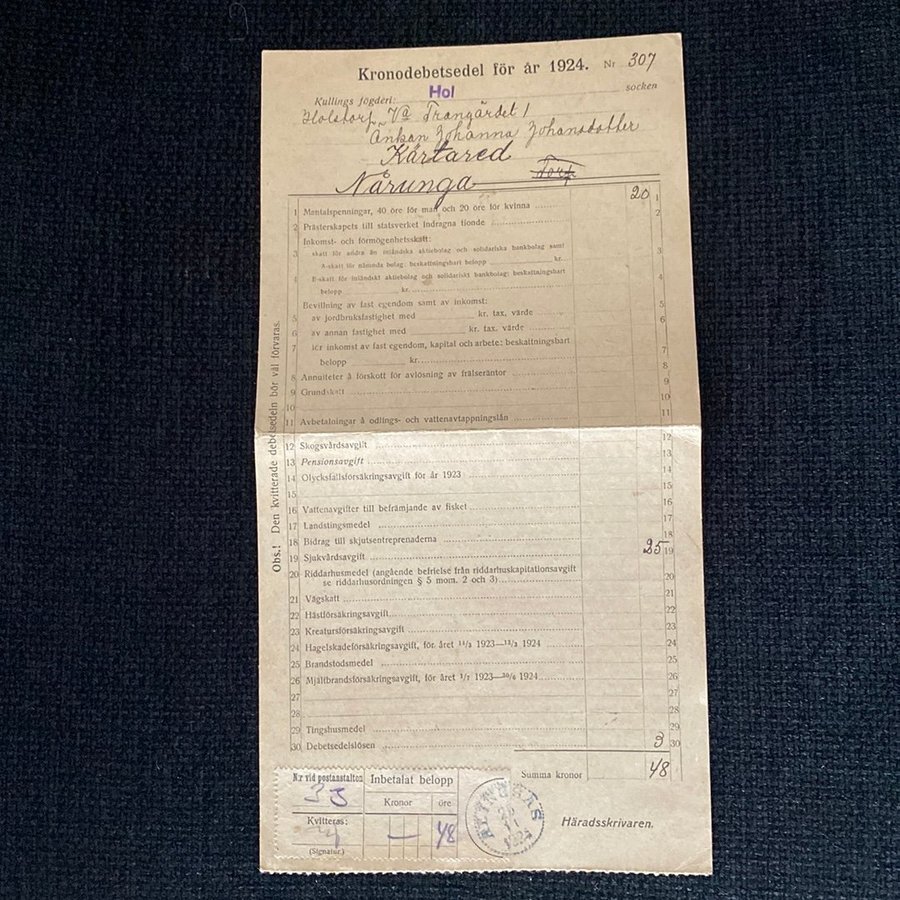 Kronodebetsedel för år 1924. Nr 307
Kullings fögderi: Hol socken
Va Trangärdet 1
Änkan Johanna Johansdotter
Kärtared
Nårunga
1 Mantalspenningar, 40 öre för man och 20 öre för kvinna 20 1
2 Prästerskapets till statsverket indragna tionde 2
Inkomst- och förmögenhetsskatt:
3 skatt för andra än inländska aktiebolag och solidariska bankbolag samt
A-skatt för nämnda bolag: beskattningsbart belopp kr. 3
4 B-skatt för inländskt aktiebolag och solidariskt bankbolag: beskattningsbart
belopp kr. 4
Bevillning av fast egendom samt av inkomst:
5 av jordbruksfastighet med kr. tax. värde 5
6 av annan fastighet med kr. tax. värde 6
7 för inkomst av fast egendom, kapital och arbete: beskattningsbart
belopp kr. 7
8 Annuiteter å förskott för avlösning av frälseräntor 8
9 Grundskatt 9
10 10
11 Avbetalningar å odlings- och vattenavtappningslån 11
12 Skogsvårdsavgift 12
13 Pensionsavgift 13
14 Olycksfallsförsäkringsavgift för år 1923 14
15 15
16 Vattenavgifter till befrämjande av fisket 16
17 Landstingsmedel 17
18 Bidrag till skjutsentreprenaderna 18
19 Sjukvårdsavgift 25 19
20 Riddarhusmedel (angående befrielse från riddarhuskapitationsavgift
se riddarhusordningen § 5 mom. 2 och 3) 20
21 Vägskatt 21
22 Hästförsäkringsavgift 22
23 Kreatursförsäkringsavgift 23
24 Hagelskadeförsäkringsavgift, för året 14/3 1923—13/3 1924 24
25 Brandstodsmedel 25
26 Mjältbrandsförsäkringsavgift, för året 1/7 1923—30/6 1924 26
27 27
28 28
29 Tingshusmedel 29
30 Debetsedelslösen 3 30
Summa kronor 48
Obs.! Den kvitterade debetsedeln bör väl förvaras.
N:r vid postanstalten Inbetalat belopp
Kronor öre
Kvitteras: — 48
(Signatur.)
ALINGSÅS
1924
Häradsskrivaren.